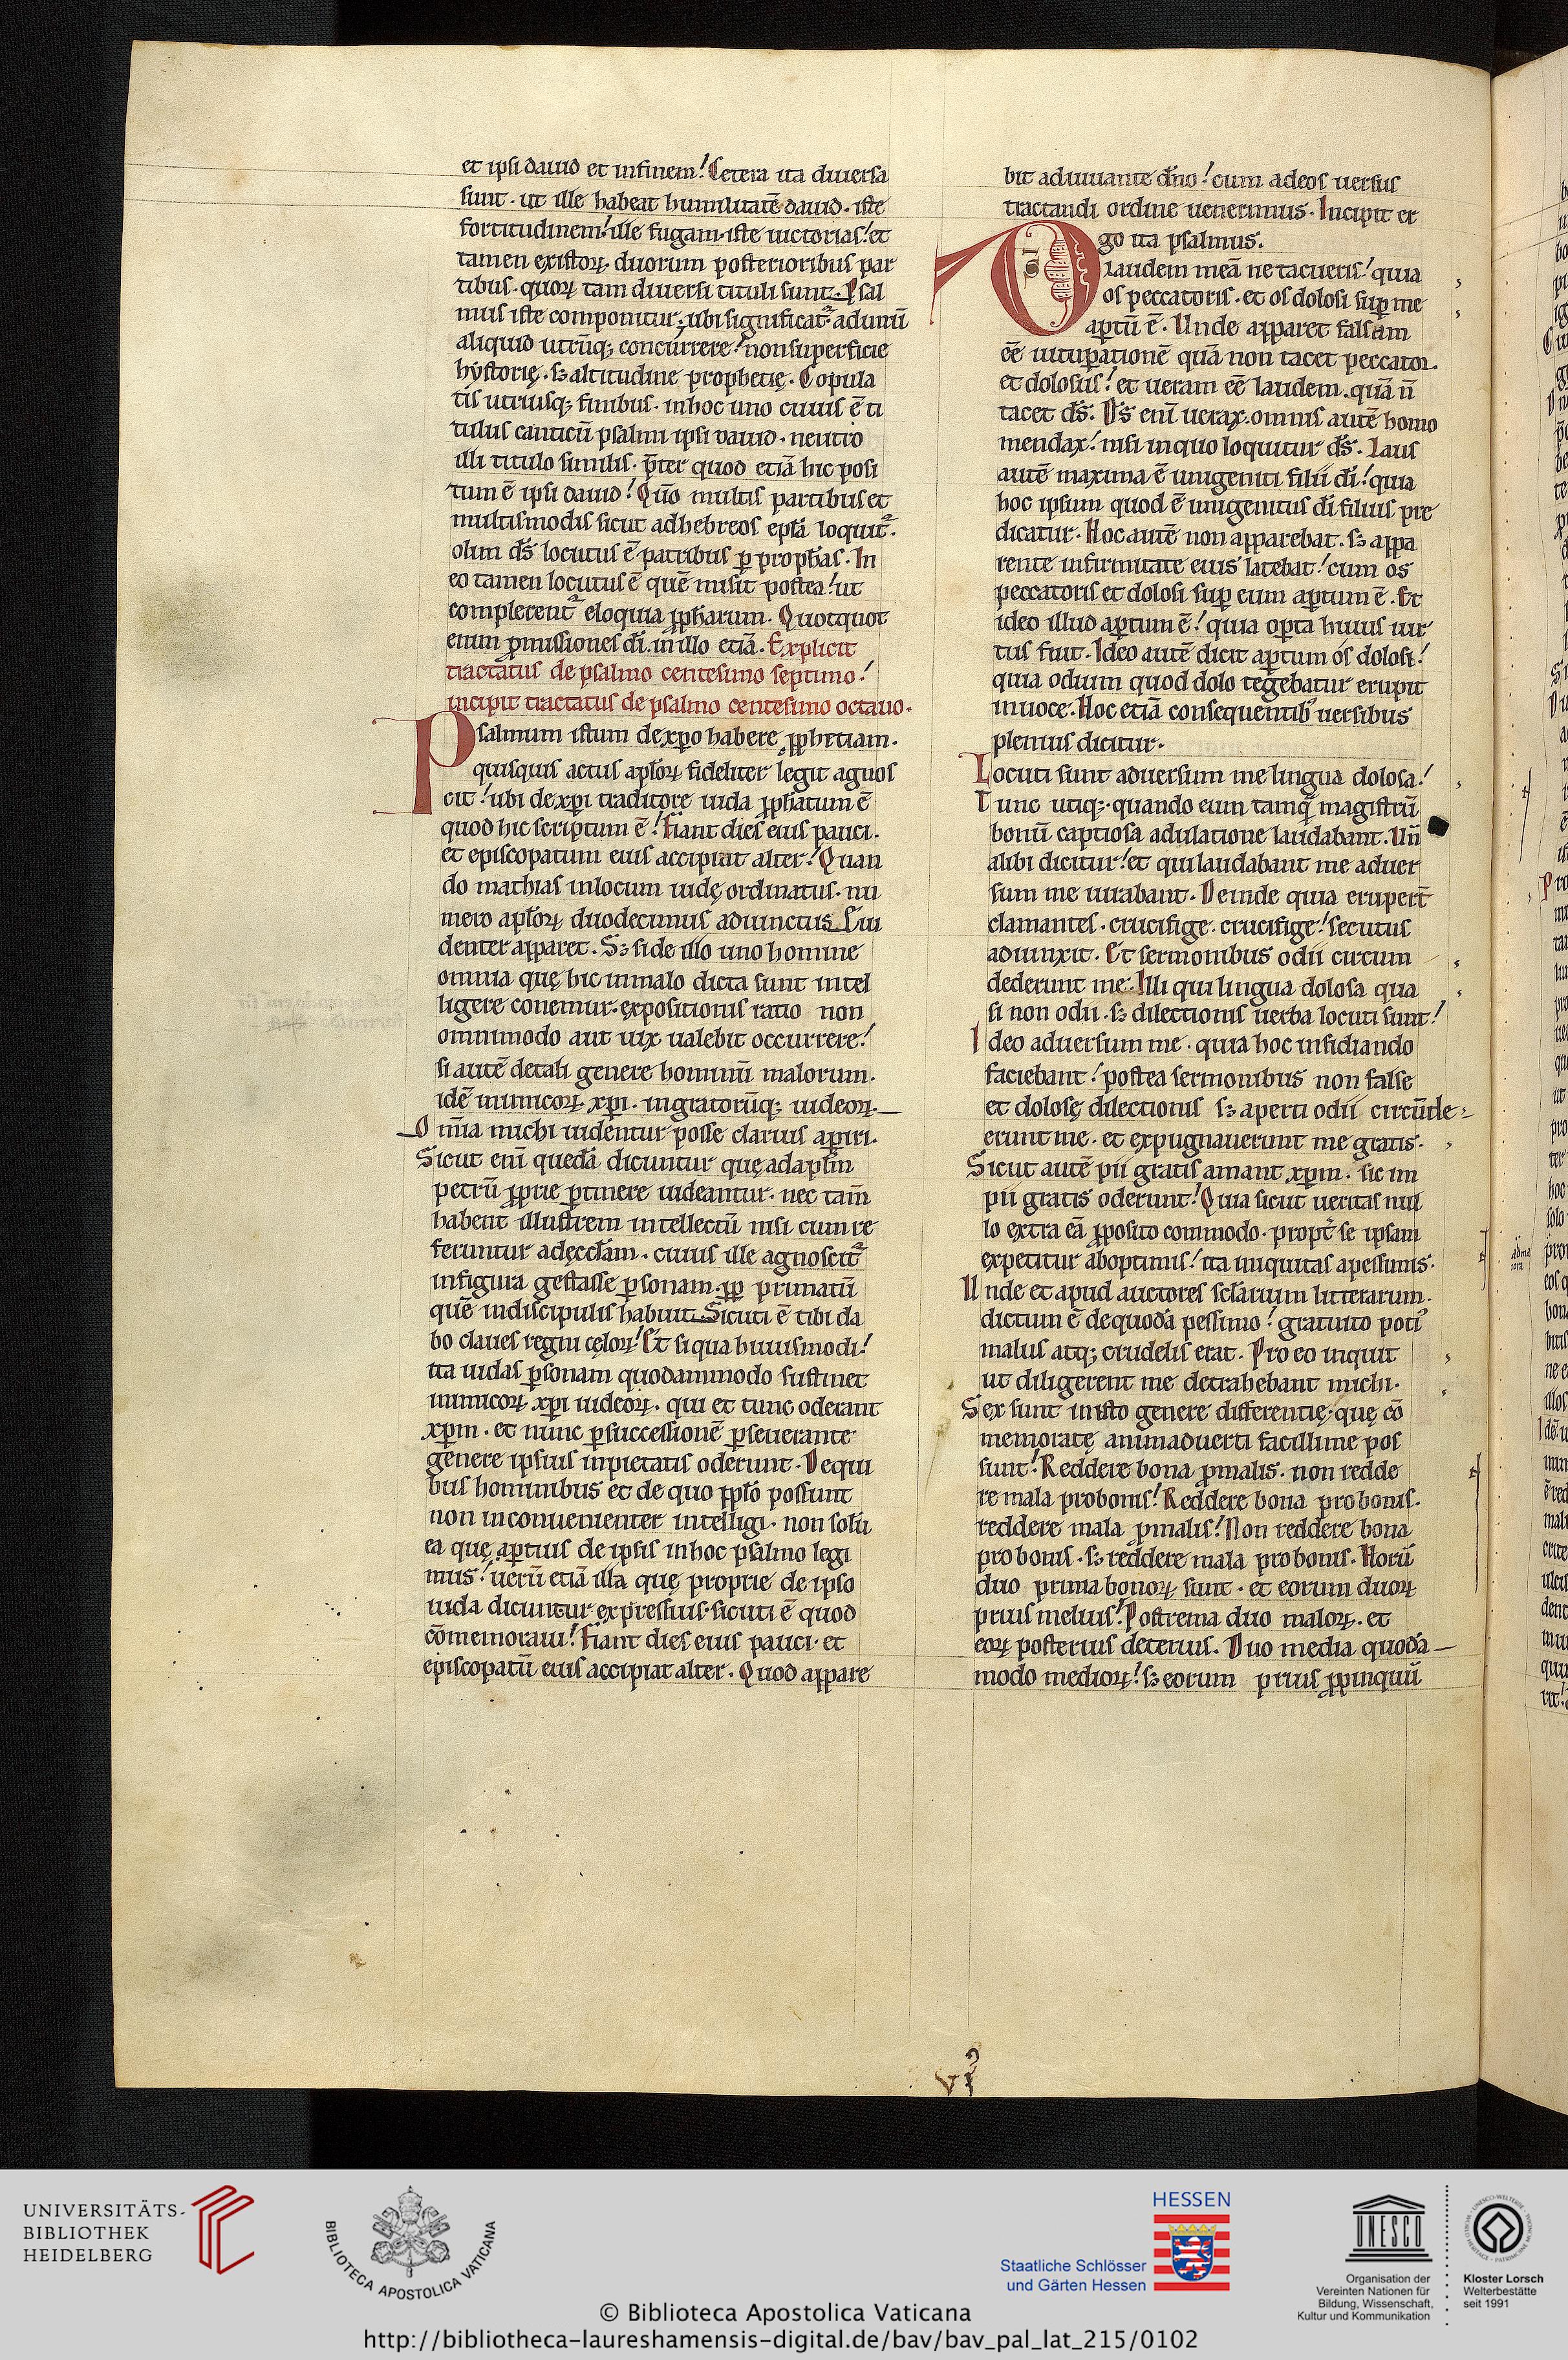 et ipsi dauid et infinem! Cetera ita diuersa
sunt · ut ille habeat humilitatē dauid · iste
fortitudinem! ille fugam · iste uictorias! et
tamen existoꝝ duorum posterioribus par
tibus · quoꝝ tam diuersi tituli sunt. Psal
mus iste componitur; ubi significat᷑ adunū
aliquid utrūqꝫ concurrere! non superficie
hystorię · sꝫ altitudine prophetię. Copula
tis utriusqꝫ finibus · inhoc uno cuius ē ti
tulus canticū psalmi ipsi dauid · neutro
illi titulo similis · p̄ter quod etiā hic posi
tum ē ipsi dauid! Qm̄o multis partibus et
multis modis sicut adhebreos epła loquit᷑ ·
olim d̄s locutus ē patribus ꝑ prophās. In
eo tamen locutus ē quē misit postea! ut
complerent᷑ eloquia ꝓpharum. Quotquot
enim ꝓmissiones dī · in illo etiā. Explicit
tractatus de psalmo centesimo septimo!
incipit tractatus de psalmo centesimo octauo.
Psalmum istum de xp̄o habere ꝓphetiam.
quisquis actus apłoꝝ fideliter legit agnos
cit! ubi de xp̄i traditore iuda ꝓphatum ē
quod hic scriptum ē! Fiant dies eius pauci.
et episcopatum eius accipiat alter! Quan
do mathias inlocum iudę ordinatus · nu
mero apłoꝝ duodecimus adiunctus. Eui
denter apparet. Sꝫ si de illo uno homine
omnia quę hic inmalo dicta sunt intel
ligere conemur · expositionis ratio non
omnimodo aut uix ualebit occurrere!
si autē detali genere hominū malorum.
idē inimicoꝝ xp̄i · ingratorūqꝫ iudeoꝝ.
Om̄ia michi uidentur posse clarius aperiri.
Sicut enī quedā dicuntur quę adapłm
petrū ꝓprie ꝑtinere uideantur · nec tam̄
habent illustrem intellectū nisi cum re
feruntur adęccłam · cuius ille agnoscit᷑
infigura gestasse ꝑsonam · ꝓp primatū
quē indiscipulis habuit. Sicuti ē tibi da
bo claues regni cęloꝝ! Et siqua huiusmodi!
ita iudas ꝑsonam quodammodo sustinet
inimicoꝝ xp̄i iudeoꝝ · qui et tunc oderant
xp̄m · et nunc ꝑsuccessionē ꝑseuerante
genere ipsius inpietatis oderunt. De qui
bus hominibus et de quo ꝓpło possunt
non inconuenienter intelligi · non solū
ea quę aꝑtius de ipsis inhoc psalmo legi
mus! uerū etiā illa quę proprie de ipso
iuda dicuntur expressius · sicuti ē quod
cōmemoraui! Fiant dies eius pauci · et
episcopatū eius accipiat alter. Quod appare
bit adiuuante dn̄o! cum adeos uersus
tractandi ordine uenerimus. Incipit er
go ita psalmus.
laudem meā ne tacueris! quia
os peccatoris · et os dolosi suꝑ me
aꝑtū ē. Unde apparet falsam
eē uituꝑationē quā non tacet peccator.
et dolosus! et ueram eē laudem · quā n̄
tacet d̄s. D̄s enī uerax · omnis autē homo
mendax! nisi inquo loquitur d̄s. Laus
autē maxima ē unigeniti filii dī! quia
hoc ipsum quod ē unigenitus dī filius pre
dicatur. Hoc autē non apparebat · sꝫ appa
rente infirmitate eius latebat! cum os
peccatoris et dolosi suꝑ eum aꝑtum ē. Et
ideo illud aꝑtum ē! quia oꝑta huius uir
tus fuit. Ideo autē dicit aꝑtum os dolosi!
quia odium quod dolo tegebatur erupit
inuoce. Hoc etiā consequentibꝰ uersibus
plenius dicitur.
Locuti sunt aduersum me lingua dolosa!
Tunc utiqꝫ · quando eum tamq̄ magistrū
bonū captiosa adulatione laudabant. Un̄
alibi dicitur! et qui laudabant me aduer
sum me iurabant. Deinde quia erupert̄
clamantes · crucifige · crucifige! secutus
adiunxit. Et sermonibus odii circum
dederunt me. Illi qui lingua dolosa qua
si non odii · sꝫ dilectionis uerba locuti sunt!
Ideo aduersum me · quia hoc insidiando
faciebant! postea sermonibus non false
et dolosę dilectionis sꝫ aperti odii circūde
erunt me · et expugnauerunt me gratis.
Sicut autē pii gratis amant xp̄m · sic im
pii gratis oderunt! Quia sicut ueritas nul
lo extra eā ꝓposito commodo · propt̄ se ipsam
expetitur aboptimis! ita iniquitas apessimis.
Unde et apud auctores scłarium litterarum.
dictum ē dequodā pessimo! gratuito potiꝰ
malus atqꝫ crudelis erat. Pro eo inquit
ut diligerent me detrahebant michi.
Sex sunt inisto genere differentię; quę cō
memoratę animaduerti facillime pos
sunt! Reddere bona ꝓmalis · non redde
re mala probonis! Reddere bona pro bonis.
reddere mala ꝓmalis! Non reddere bona
pro bonis · sꝫ reddere mala pro bonis. Horū
duo prima bonoꝝ sunt · et eorum duoꝝ
prius melius! Postrema duo maloꝝ · et
eoꝝ posterius deterius. Duo media quodā
modo medioꝝ! sꝫ eorum prius ꝓpinquū
VIꝰ
UNIVERSITÄTS-
BIBLIOTHEK
HEIDELBERG
BIBLIOTECA APOSTOLICA VATICANA
HESSEN
Staatliche Schlösser
und Gärten Hessen
UNESCO
Organisation der
Vereinten Nationen für
Bildung, Wissenschaft,
Kultur und Kommunikation
Kloster Lorsch
Welterbestätte
seit 1991
© Biblioteca Apostolica Vaticana
http://bibliotheca-laureshamensis-digital.de/bav/bav_pal_lat_215/0102